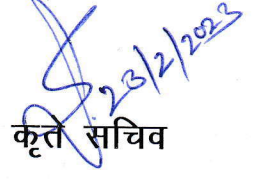 23/2/2023
कृते सचिव